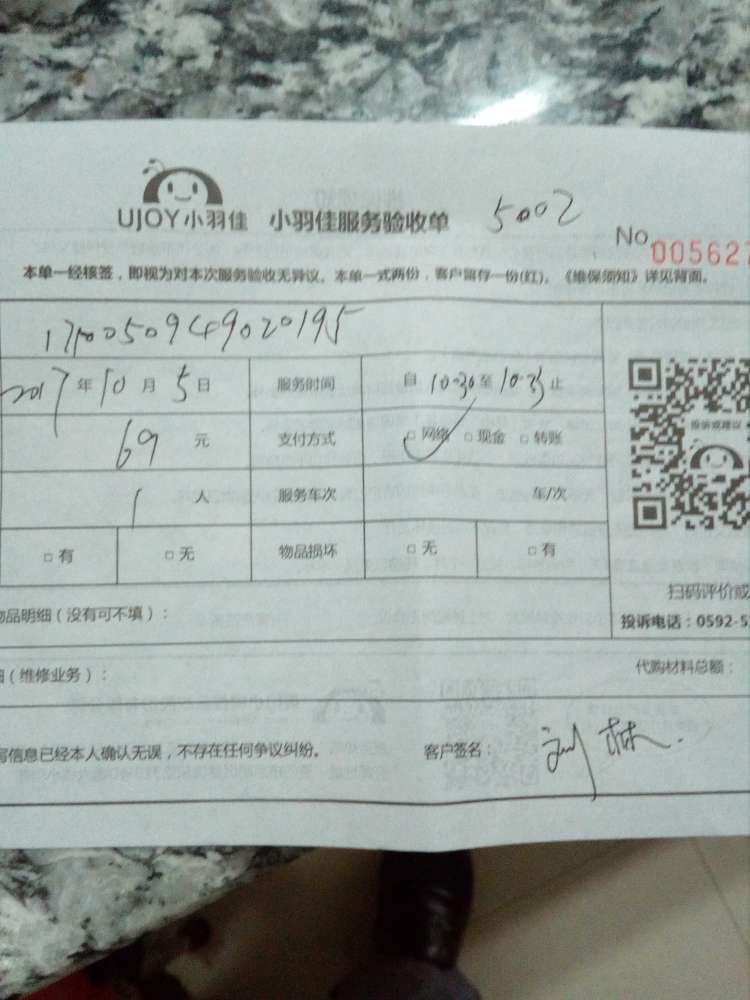 UJOY小羽佳 小羽佳服务验收单 5002
No 005627
本单一经核签，即视为对本次服务验收无异议。本单一式两份，客户留存一份(红)。《维保须知》详见背面。
2017年10月5日 服务时间 自10:30至10:35止
69元 支付方式 □网络 □现金 □转账
1人 服务车次 车/次
□有 □无 物品损坏 □无 □有
投诉或建议
扫码评价或
投诉电话：0592-5
物品明细（没有可不填）：
（维修业务）： 代购材料总额：
写信息已经本人确认无误，不存在任何争议纠纷。 客户签名：刘林